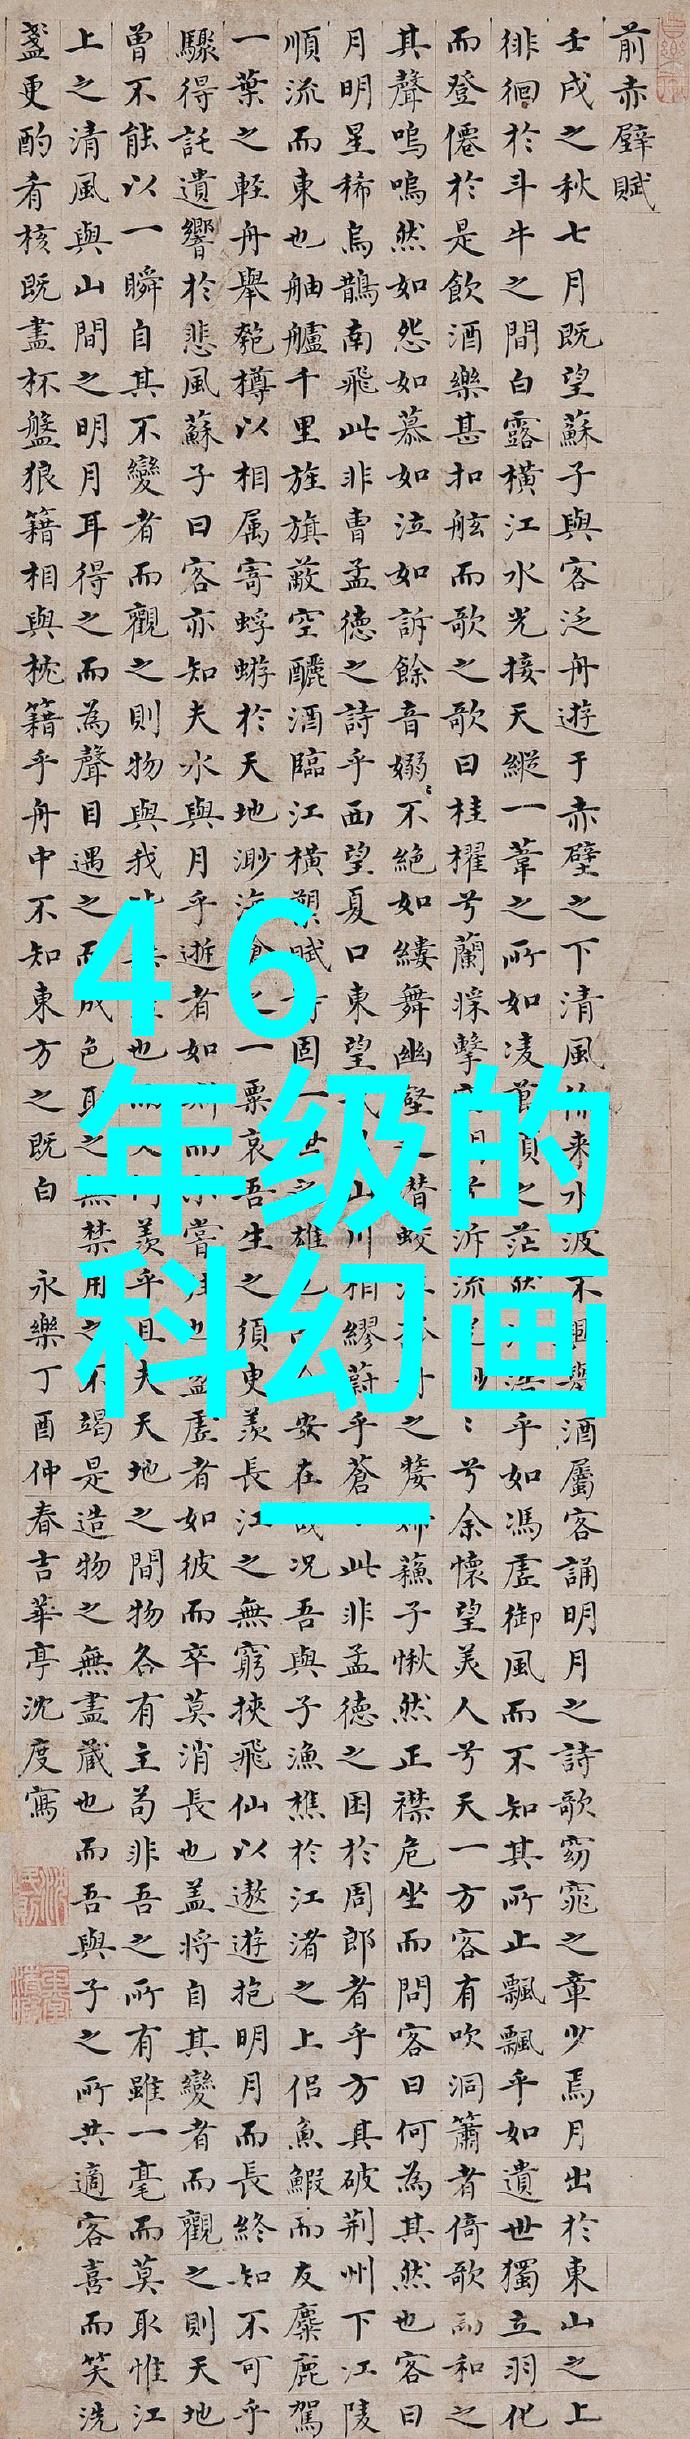 前赤壁賦
壬戌之秋七月既望蘇子與客泛舟遊于赤壁之下清風徐來水波不興舉酒屬客誦明月之詩歌窈窕之章少焉月出於東山之上
徘徊於斗牛之間白露橫江水光接天縱一葦之所如凌萬頃之茫然浩乎如馮虛御風而不知其所止飄飄乎如遺世獨立羽化
而登僊於是飲酒樂甚扣舷而歌之歌曰桂櫂兮蘭槳擊空明兮泝流光渺〻兮余懷望美人兮天一方客有吹洞簫者倚歌而和之
其聲嗚嗚然如怨如慕如泣如訴餘音嫋〻不絕如縷舞幽壑之潛蛟泣孤舟之嫠婦蘇子愀然正襟危坐而問客曰何為其然也客曰
月明星稀烏鵲南飛此非曹孟德之詩乎西望夏口東望武昌山川相繆蔚乎蒼〻此非孟德之困於周郎者乎方其破荊州下江陵
順流而東也舳艫千里旌旗蔽空釃酒臨江橫槊賦詩固一世之雄也而今安在哉況吾與子漁樵於江渚之上侶魚鰕而友麋鹿駕
一葉之輕舟舉匏樽以相属寄蜉蝣於天地渺滄之一粟哀吾生之須臾羨長江之無窮挾飛仙以遨遊抱明月而長終知不可乎
驟得託遺響於悲風蘇子曰客亦知夫水與月乎逝者如斯而未嘗往也盈虛者如彼而卒莫消長也蓋將自其變者而觀之則天地
曾不能以一瞬自其不變者而觀之則物與我皆無盡也而又何羨乎且夫天地之間物各有主苟非吾之所有雖一毫而莫取惟江
上之清風與山間之明月耳得之而為聲目遇之而成色取之無禁用之不竭是造物之無盡藏也而吾與子之所共適客喜而笑洗
盞更酌肴核既盡杯盤狼籍相與枕籍乎舟中不知東方之既白 永樂丁酉仲春吉華亭沈度寫
46
年级的
科幻画
一